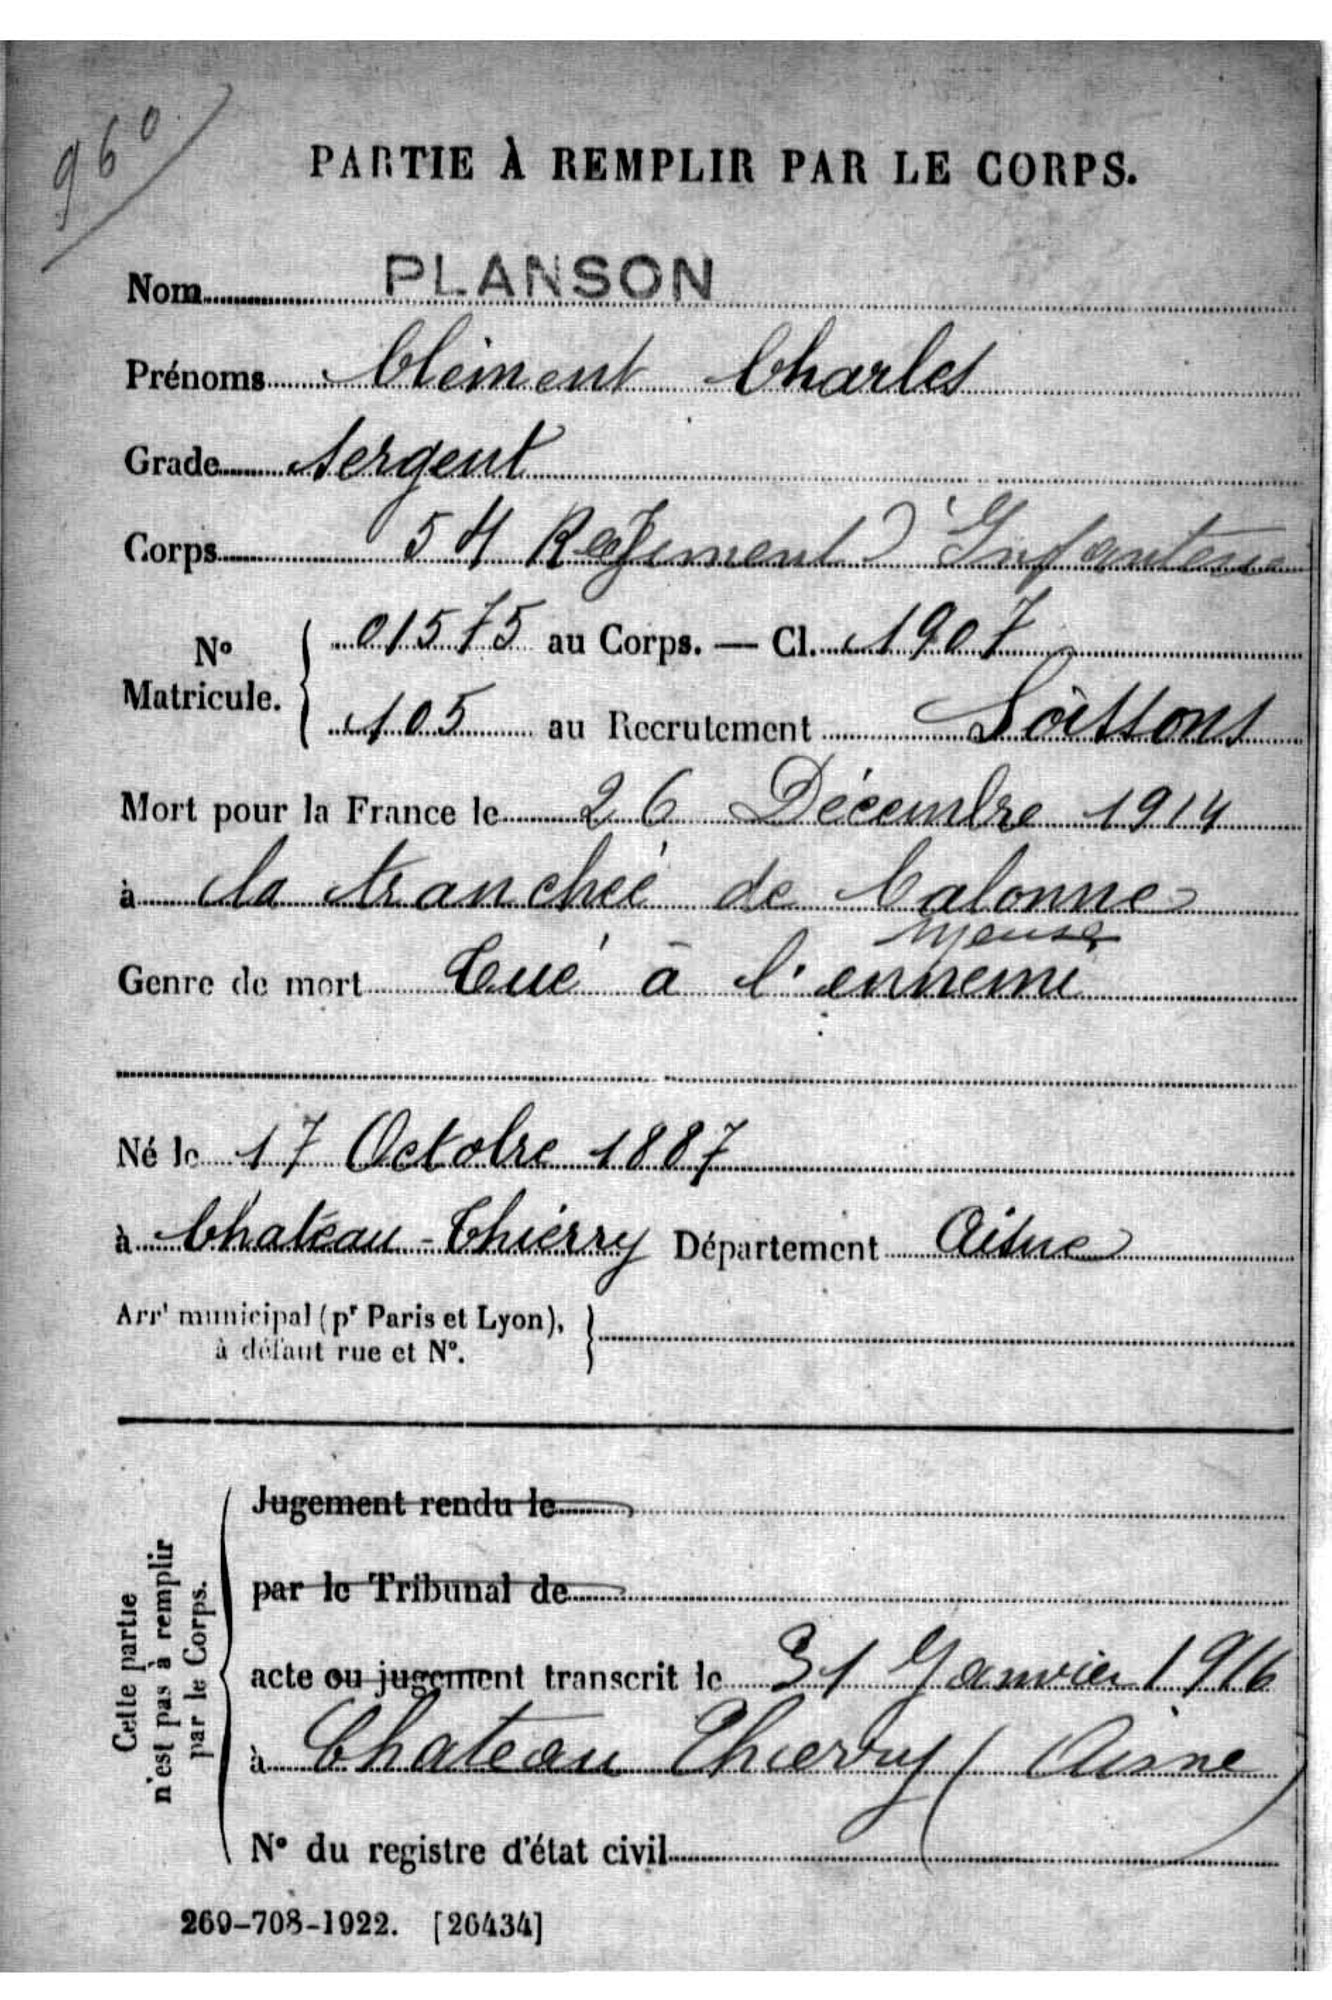 960
PARTIE À REMPLIR PAR LE CORPS.
Nom PLANSON
Prénoms Clément Charles
Grade Sergent
Corps 54 Régiment d'Infanterie
No Matricule. 01575 au Corps. — Cl. 1907
105 au Recrutement Soissons
Mort pour la France le 26 Décembre 1914
à la tranchée de Calonne
Meuse
Genre de mort Tué à l'ennemi
Né le 17 Octobre 1887
à Chateau-Thierry Département Aisne
Arrt municipal (pr Paris et Lyon),
à défaut rue et N°.
Cette partie
n'est pas à remplir
par le Corps.
Jugement rendu le
par le Tribunal de
acte ou jugement transcrit le 31 Janvier 1916
à Chateau Thierry (Aisne)
N° du registre d'état civil
269-708-1922. [26434]